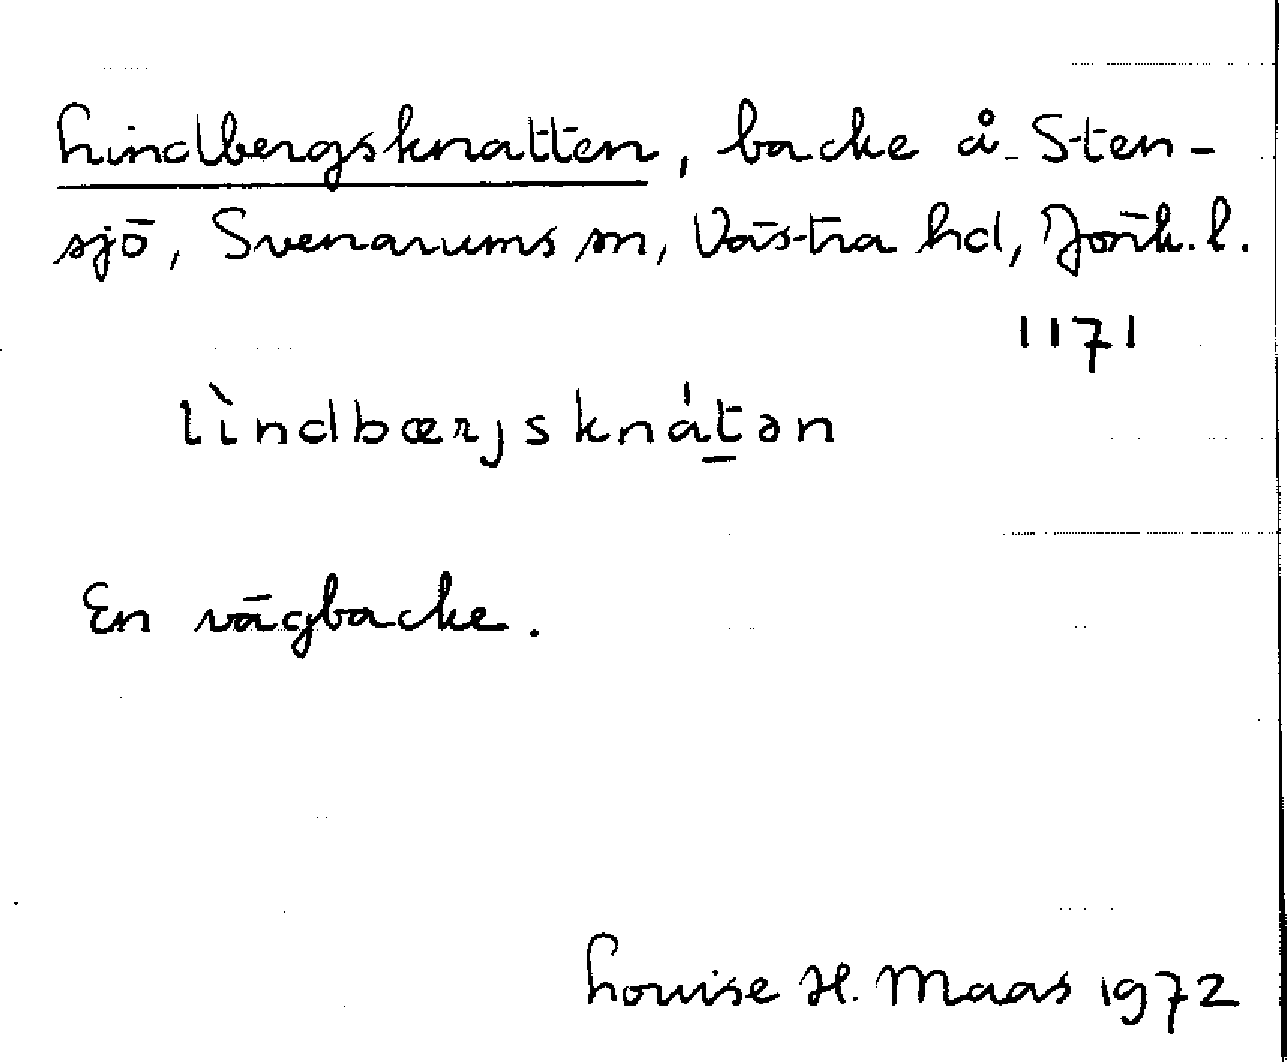 Lindbergsknatten, backe å Sten-
sjö, Svenarums sn, Västra hd, Jönk. l.
1171
lìndbærjsknát̲ən
En vägbacke.
Louise H. Maas 1972